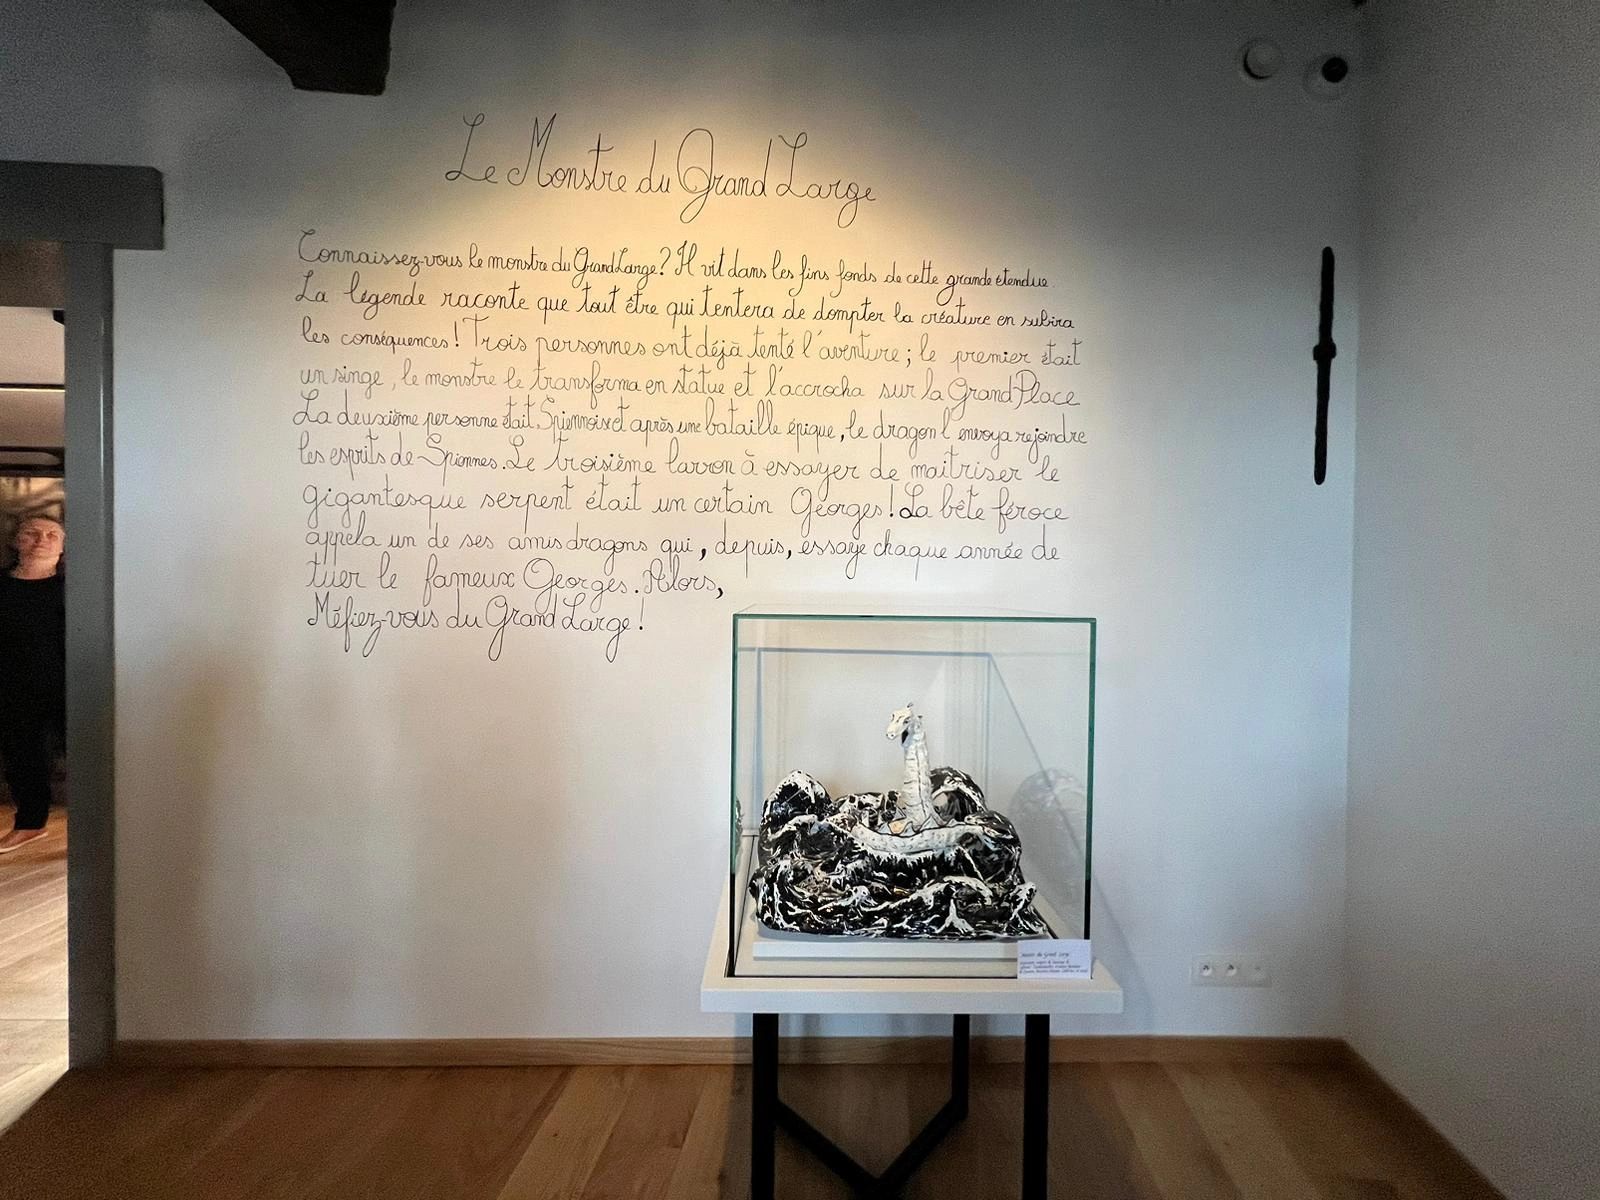 Le Monstre du Grand Large
Connaissez-vous le monstre du Grand Large? Il vit dans les fins fonds de cette grande étendue.
La légende raconte que tout être qui tentera de dompter la créature en subira
les conséquences! Trois personnes ont déjà tenté l'aventure; le premier était
un singe, le monstre le transforma en statue et l'accrocha sur la Grand Place
La deuxième personne était Spiennois et après une bataille épique, le dragon l'envoya rejoindre
les esprits de Spiennes. Le troisième larron à essayer de maîtriser le
gigantesque serpent était un certain Georges! La bête féroce
appela un de ses amis dragons qui, depuis, essaye chaque année de
tuer le fameux Georges. Alors,
Méfiez-vous du Grand Large!
du Grand Large